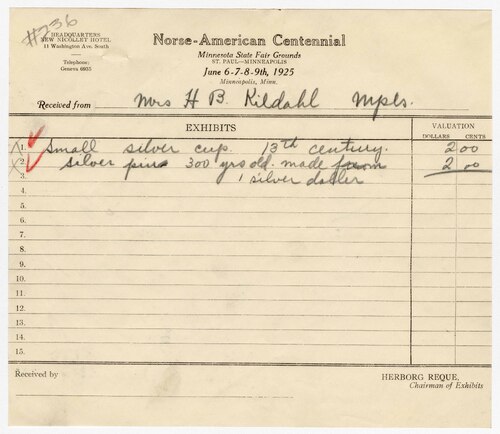 #236
HEADQUARTERS
NEW NICOLLET HOTEL
11 Washington Ave. South
Telephone:
Geneva 6935
Norse-American Centennial
Minnesota State Fair Grounds
ST. PAUL—MINNEAPOLIS
June 6-7-8-9th, 1925
Minneapolis, Minn.
Received from Mrs H B. Kildahl Mpls.
EXHIBITS
VALUATION
DOLLARS CENTS
1. Small silver cup. 13th century. 2 00
2. Silver pin 300 yrs old. made from 2 00
3. 1 silver doller
4.
5.
6.
7.
8.
9.
10.
11.
12.
13.
14.
15.
Received by
HERBORG REQUE,
Chairman of Exhibits